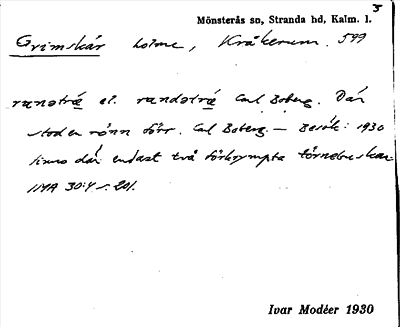 5
Mönsterås sn, Stranda hd, Kalm. l.
Grimskär holme, Kråkerum. 599
runəträ el. rundəträ Carl Boberg. Där
stod en rönn förr. Carl Boberg. — Besök: 1930
finns där endast två förkrympta törnebuskar
IMA 30:4 s. 201.
Ivar Modéer 1930